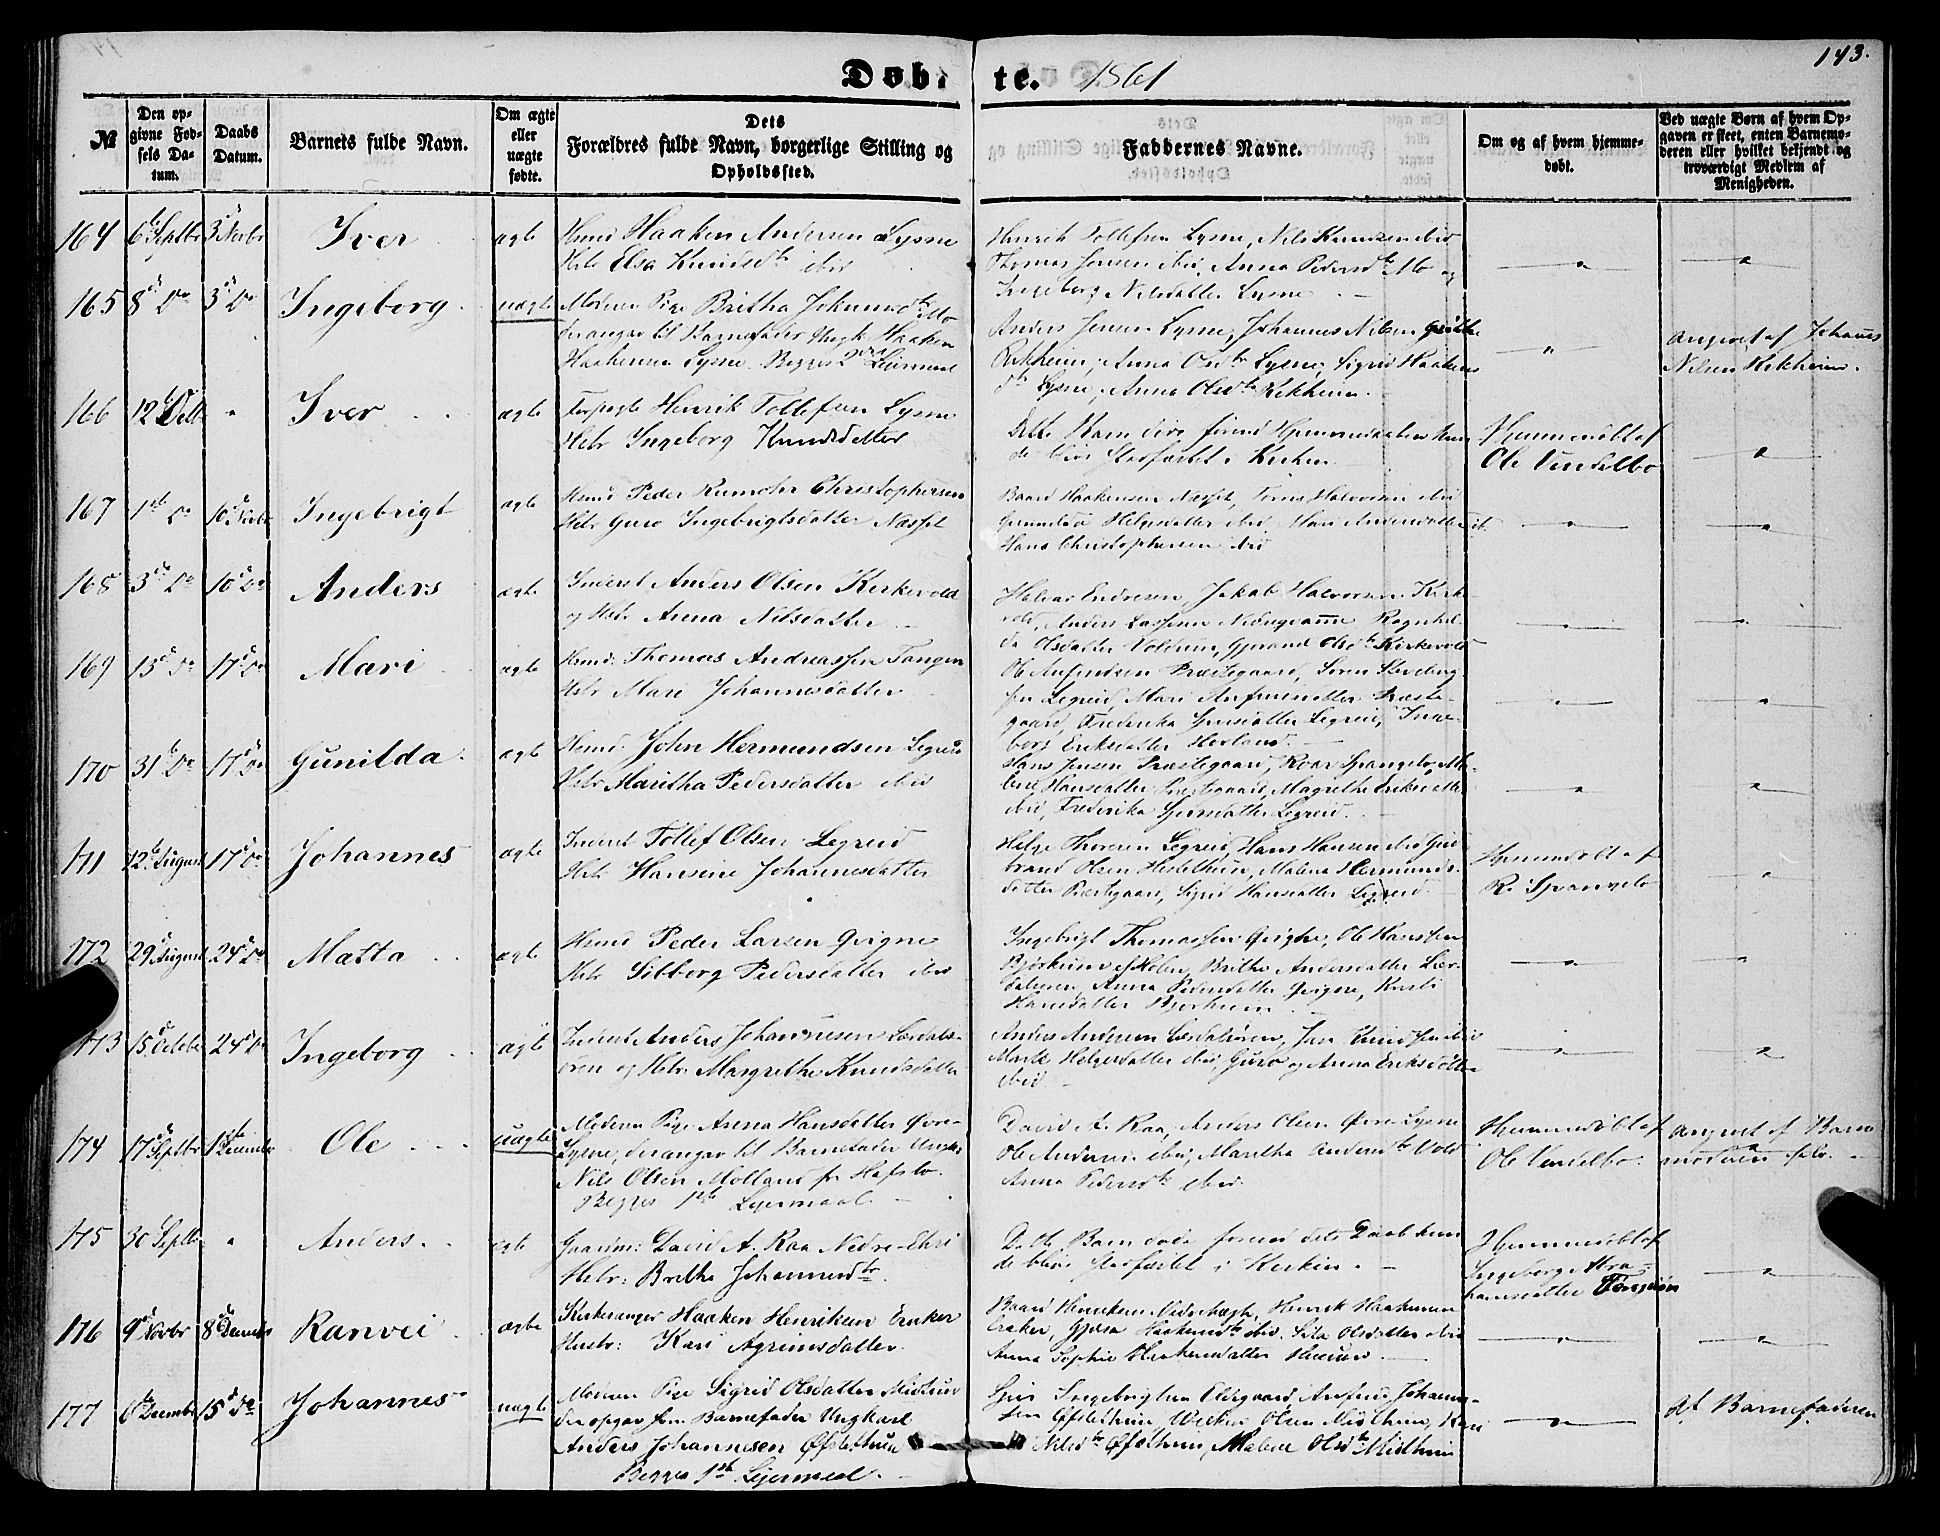 143.
Døb- te. 1861
№
Den opgivne Fødsels Datum.
Daabs Datum.
Barnets fulde Navn.
Om ægte eller uægte fødte.
Dets Forældres fulde Navn, borgerlige Stilling og Opholdssted.
Faddernes Navne.
Om og af hvem hjemmedøbt.
Ved uægte Børn af hvem Opgaven er skeet, enten Barnemoderen eller hvilket bekjendt og troværdigt Medlem af Menigheden.
164 6te Septbr 3d Novbr Iver ægte Hsmd Haaken Andersen Lysne
Hstr Elsa Knudsdtr ibid
Henrik Tollefsen Lysne, Nils Knudsen ibid
Thomas Jensen ibid, Anna Pedersdtr Mo og
Ingeborg Nilsdatter Lysne
165 8d Do 3d Do Ingeborg uægte Moderen Pige Britha Johannesdtr Mo
derangav til Barnefader Ungk Haaken
Haakensen Lysne. Begges 2det Leiermaal
Anders Jensen Lysne, Johannes Nilsen
Anna Olsdtr Lysne, Sigrid Haakens
dtr Lysne, Anna Olsdtr
angivet af Johannes
Nilsen
166 12te Iver ægte Henrik Tollefsen Lysne
Hstr Ingeborg Knudsdatter
Dette Barn døde førend Hjemmedaaben kun
de blive stadfæstet i Kirken
Hjemmedøbt af
Ole Vendelbo
167 1ste Do 10d Novbr Ingebrigt ægte Hsmd Peder Rumohr Christophersen
Hstr Guro Ingebrigtsdatter Næsset
Baard Haakensen Næsset, Halvorsen ibid
Gunnilda Helgesdatter ibid, Mari Andersdatter ib.
Hans Christophersen ibid
168 3d Do 10d Do Anders ægte Inderst Anders Olsen Kirkevold
og Hstr Anna Nilsdatter
Halvor Endresen, Jakob Halvorsen Kirke
vold, Anders Lassesen Ragnhil
da Olsdatter Voldum, Gjørand Olsdtr Kirkevold
169 15d Do 17d Do Mari ægte Hsmd: Thomas Andreassen Tangen
Hstr Mari Johannesdatter
Ole Anfindsen Præstegaard, Søren
sen Legreid, Mari Præste-
gaard, Frederika Legreid, Inge-
borg Eriksdatter
170 31te Do 17d Do Gunilda ægte Hsmd. John Hermundsen Legreid
Hstr Maritha Pedersdatter ibid
Hans Jensen Præstegaard, Roar Spangelo, Ma-
lene Hansdatter Præstegaard, Magrethe Eriksdatter
ibid, Frederika Legreid.
171 12te August 17d Do Johannes ægte Inderst Tollef Olsen Legreid
Hstr Hansine Johannesdatter
Helge Thoresen Legreid, Hans Hansen ibid Gul
brand Olsen Malena Hermunds-
datter Præstegaard, Sigrid Hansdatter Legreid
Hjemmedøbt af
R. Spangelo
172 29d August 24d Do Matta ægte Hsmd Peder Larsen Qvigne
Hstr Sibborg Pedersdatter ibid
Ingebrigt Thomassen Qvigne, Ole Hanssen
Bjørkum Britha Andersdatter Lær-
dalsøren, Anna Pedersdatter Qvigne, Kristi
Hansdatter Bjørkum
173 15d October 24d Do Ingeborg ægte Inderst Anders Johannesen Lærdals-
øren og Hstr Margrethe Knudsdatter
Anders Andersen Lærdalsøren, Jan Knudsen ibid
Marthe Helgesdatter ibid, Guro og Anna Eriksdøttre
ibid
174 17d Septbr 1ste December Ole uægte Moderen Pige Anna Hansdatter Øvre
Lysne, derangav til Barnefader Ungkar
Nils Olsen Molland fr Hafslo.
Begges 1ste Leiermaal.
David A. Raa, Anders Olsen Øvre Lysne
Ole Andersen ibid, Maritha Andersdtr Vold
Anna Pedersdtr ibid.
Hjemmedøbt af
Ole Vendelbo.
angivet af Barne
moderen selv.
175 30 Septbr Anders. ægte Gaardm: David A. Raa Nedre-Eri
Hstr: Britha Johannesdtr.
Dette Barn døde førend dets Daab kun
de blive stadfæstet i Kirken.
Hjemmedøbt af
Ingeborg Abra-
hamsdatter Tønjum
176 9d Novbr 8d December Ranvei ægte Kirkesanger Haaken Henriksen Eraker
Hustr: Kari Agrimsdatter
Baard Henriksen Henrik Haakensen
Eraker, Gjøsa Haakensdtr ibid. Sila Olsdatter ibid
Anna Sophie Haakensdatter
177 6te December 15d Do Johannes uægte Moderen Pige Sigrid Olsdatter Midthun
der opgav som Barnefader Ungkarl
Anders Johannesen Øfstethun
Begges 1ste Leiermaal.
Ingebrigtsen Eldegaard, Anfind Johannes-
sen Øfstethun, Olsen Midthun, Kari
Nilsdtr Øfstethun, Malene Olsdtr Midthun
Af Barnefaderen